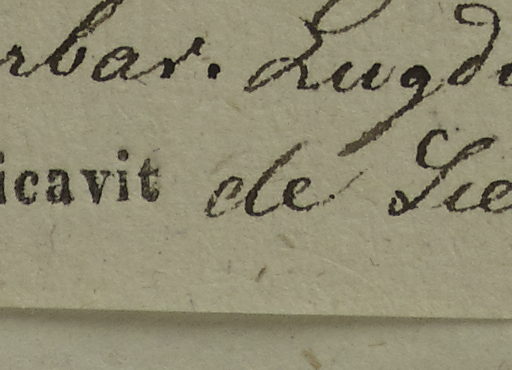 rbar. Lugdu
icavit de Sie